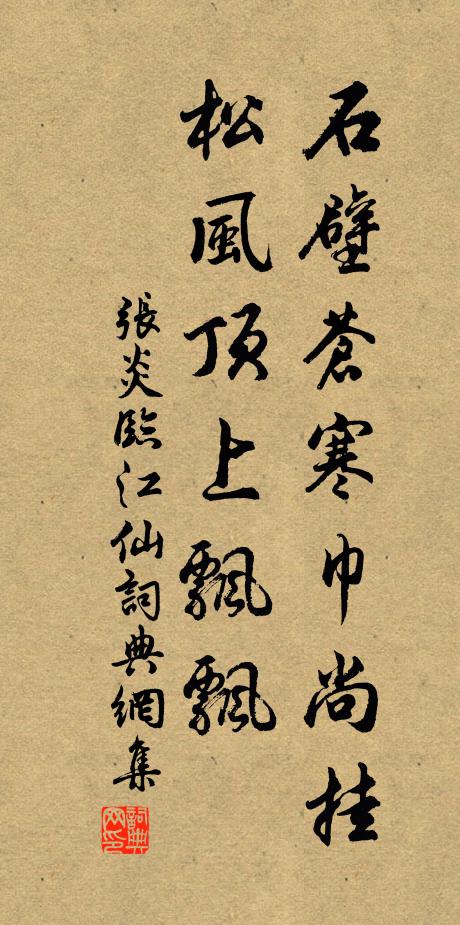 石壁蒼寒巾尚挂
松風頂上飄飄
張炎臨江仙詞典網集
詞典网印